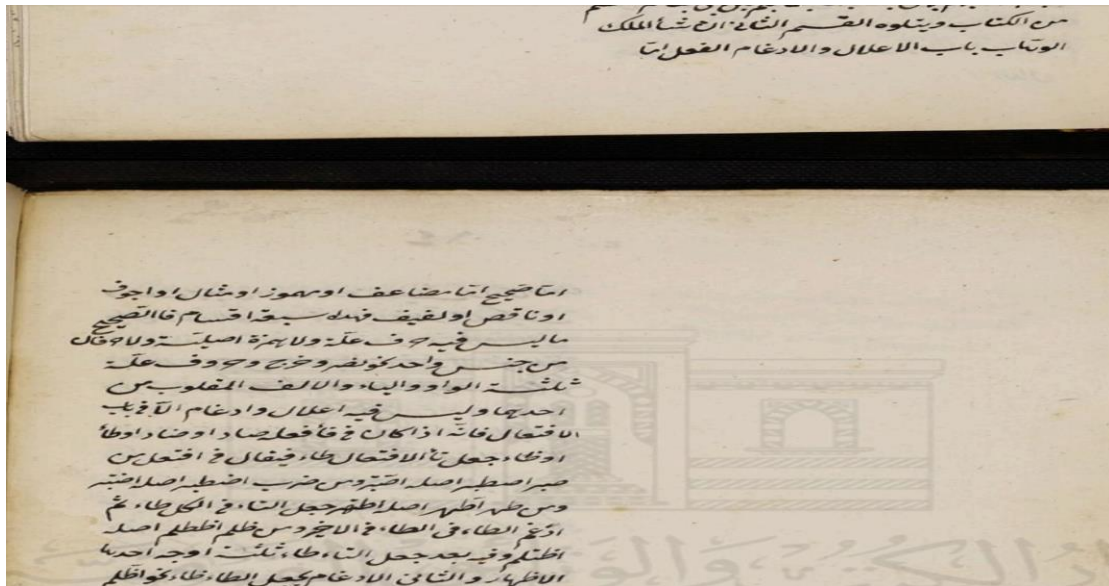 من الكتاب ويتلوه القسم الثاني ان شأ الملك
الوهاب باب الاعلال والادغام الفعل اما
اما صحيح اما مضاعف او مهموز او مثال او اجوف
او ناقص او لفيف فهذه سبعة اقسام فاالصحيح
ما ليس فيه حرف علة ولا همزة اصلية ولا حرفان
من جنس واحد نحو نصر وخرج وحروف علة
ثلثة الواو والياء والالف المقلوب من
احديهما وليس فيه اعلال وادغام الا في باب
الافتعال فانه اذا كان في فأ فعل صاد او ضاد او طأ
او ظاء جعل تأ الافتعال طاء فيقال في افتعل من
صبر اصطبر اصله اصتبر ومن ضرب اضطرب اصله
ومن طهر اطهر اصله اطتهر جعل التاء في الكل طاء ثم
ادغم الطاء في الطاء في الاخير ومن ظلم اظطلم اصله
اظتلم وفيه بعد جعل التاء طاء ثلثة اوجه احدها
الاظهار والثاني الادغام بجعل الطاء ظاء نحو اظلم
دار الكتب والوثائق